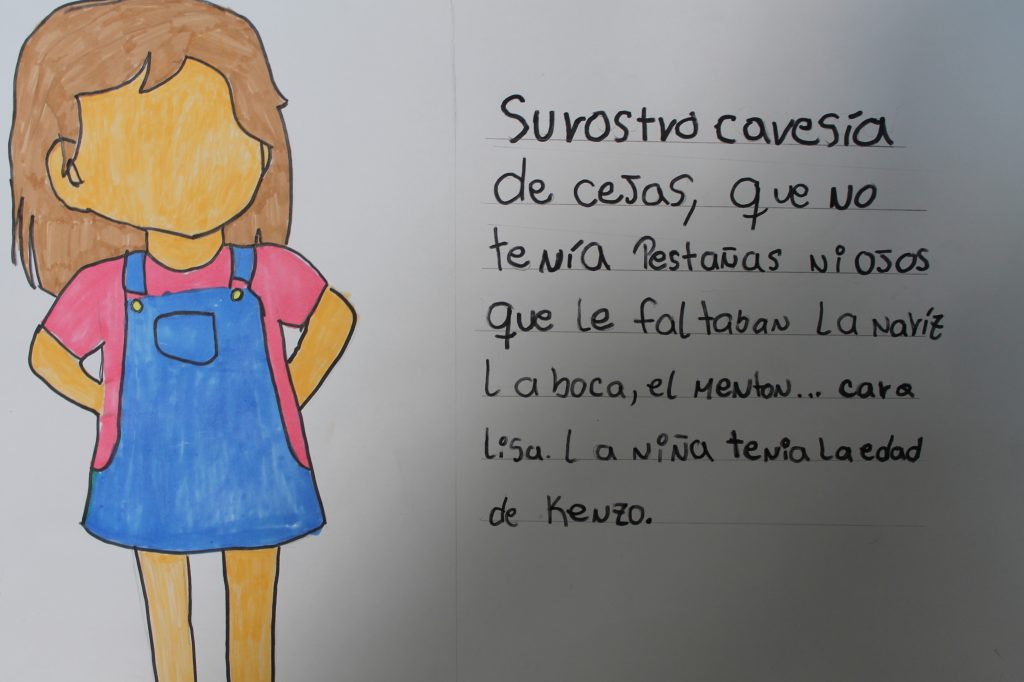 Su rostro cavesía
de cejas, que no
tenía Pestañas ni ojos
que le faltaban la naríz
La boca, el menton... cara
lisa. La niña tenia la edad
de Kenzo.